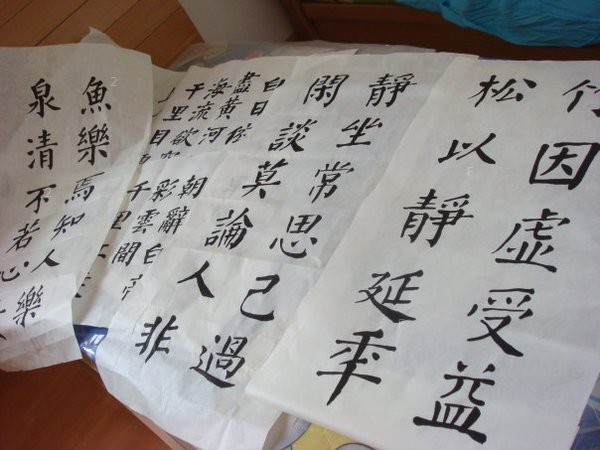 竹因虛受益
松以靜延年
靜坐常思己過
閑談莫論人非
白日依
盡黃河
海流欲
千里目
朝辭白帝
彩雲間
千里
魚樂焉知人樂
泉清不若心